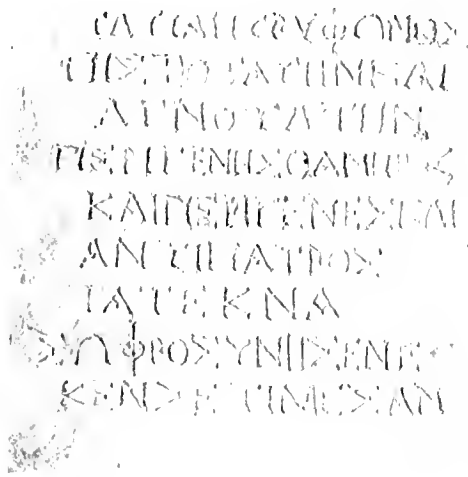 ΤΑΤΙΑΝ ΤΡΥΦΩΝΟΣ
ΠΙΣΤΟΤΑΤΗΝ ΚΑΙ
ΑΓΝΟΤΑΤΗΝ
ΠΕΡΙΓΕΝΗΣ Ο ΑΝΗΡ
ΚΑΙ ΠΕΡΙΓΕΝΗΣ ΚΑΙ
ΑΝΤΙΠΑΤΡΟΣ
ΤΑ ΤΕΚΝΑ
ΣΩΦΡΟΣΥΝΗΣ ΕΝΕ
ΚΕΝ ΕΤΙΜΗΣΑΝ